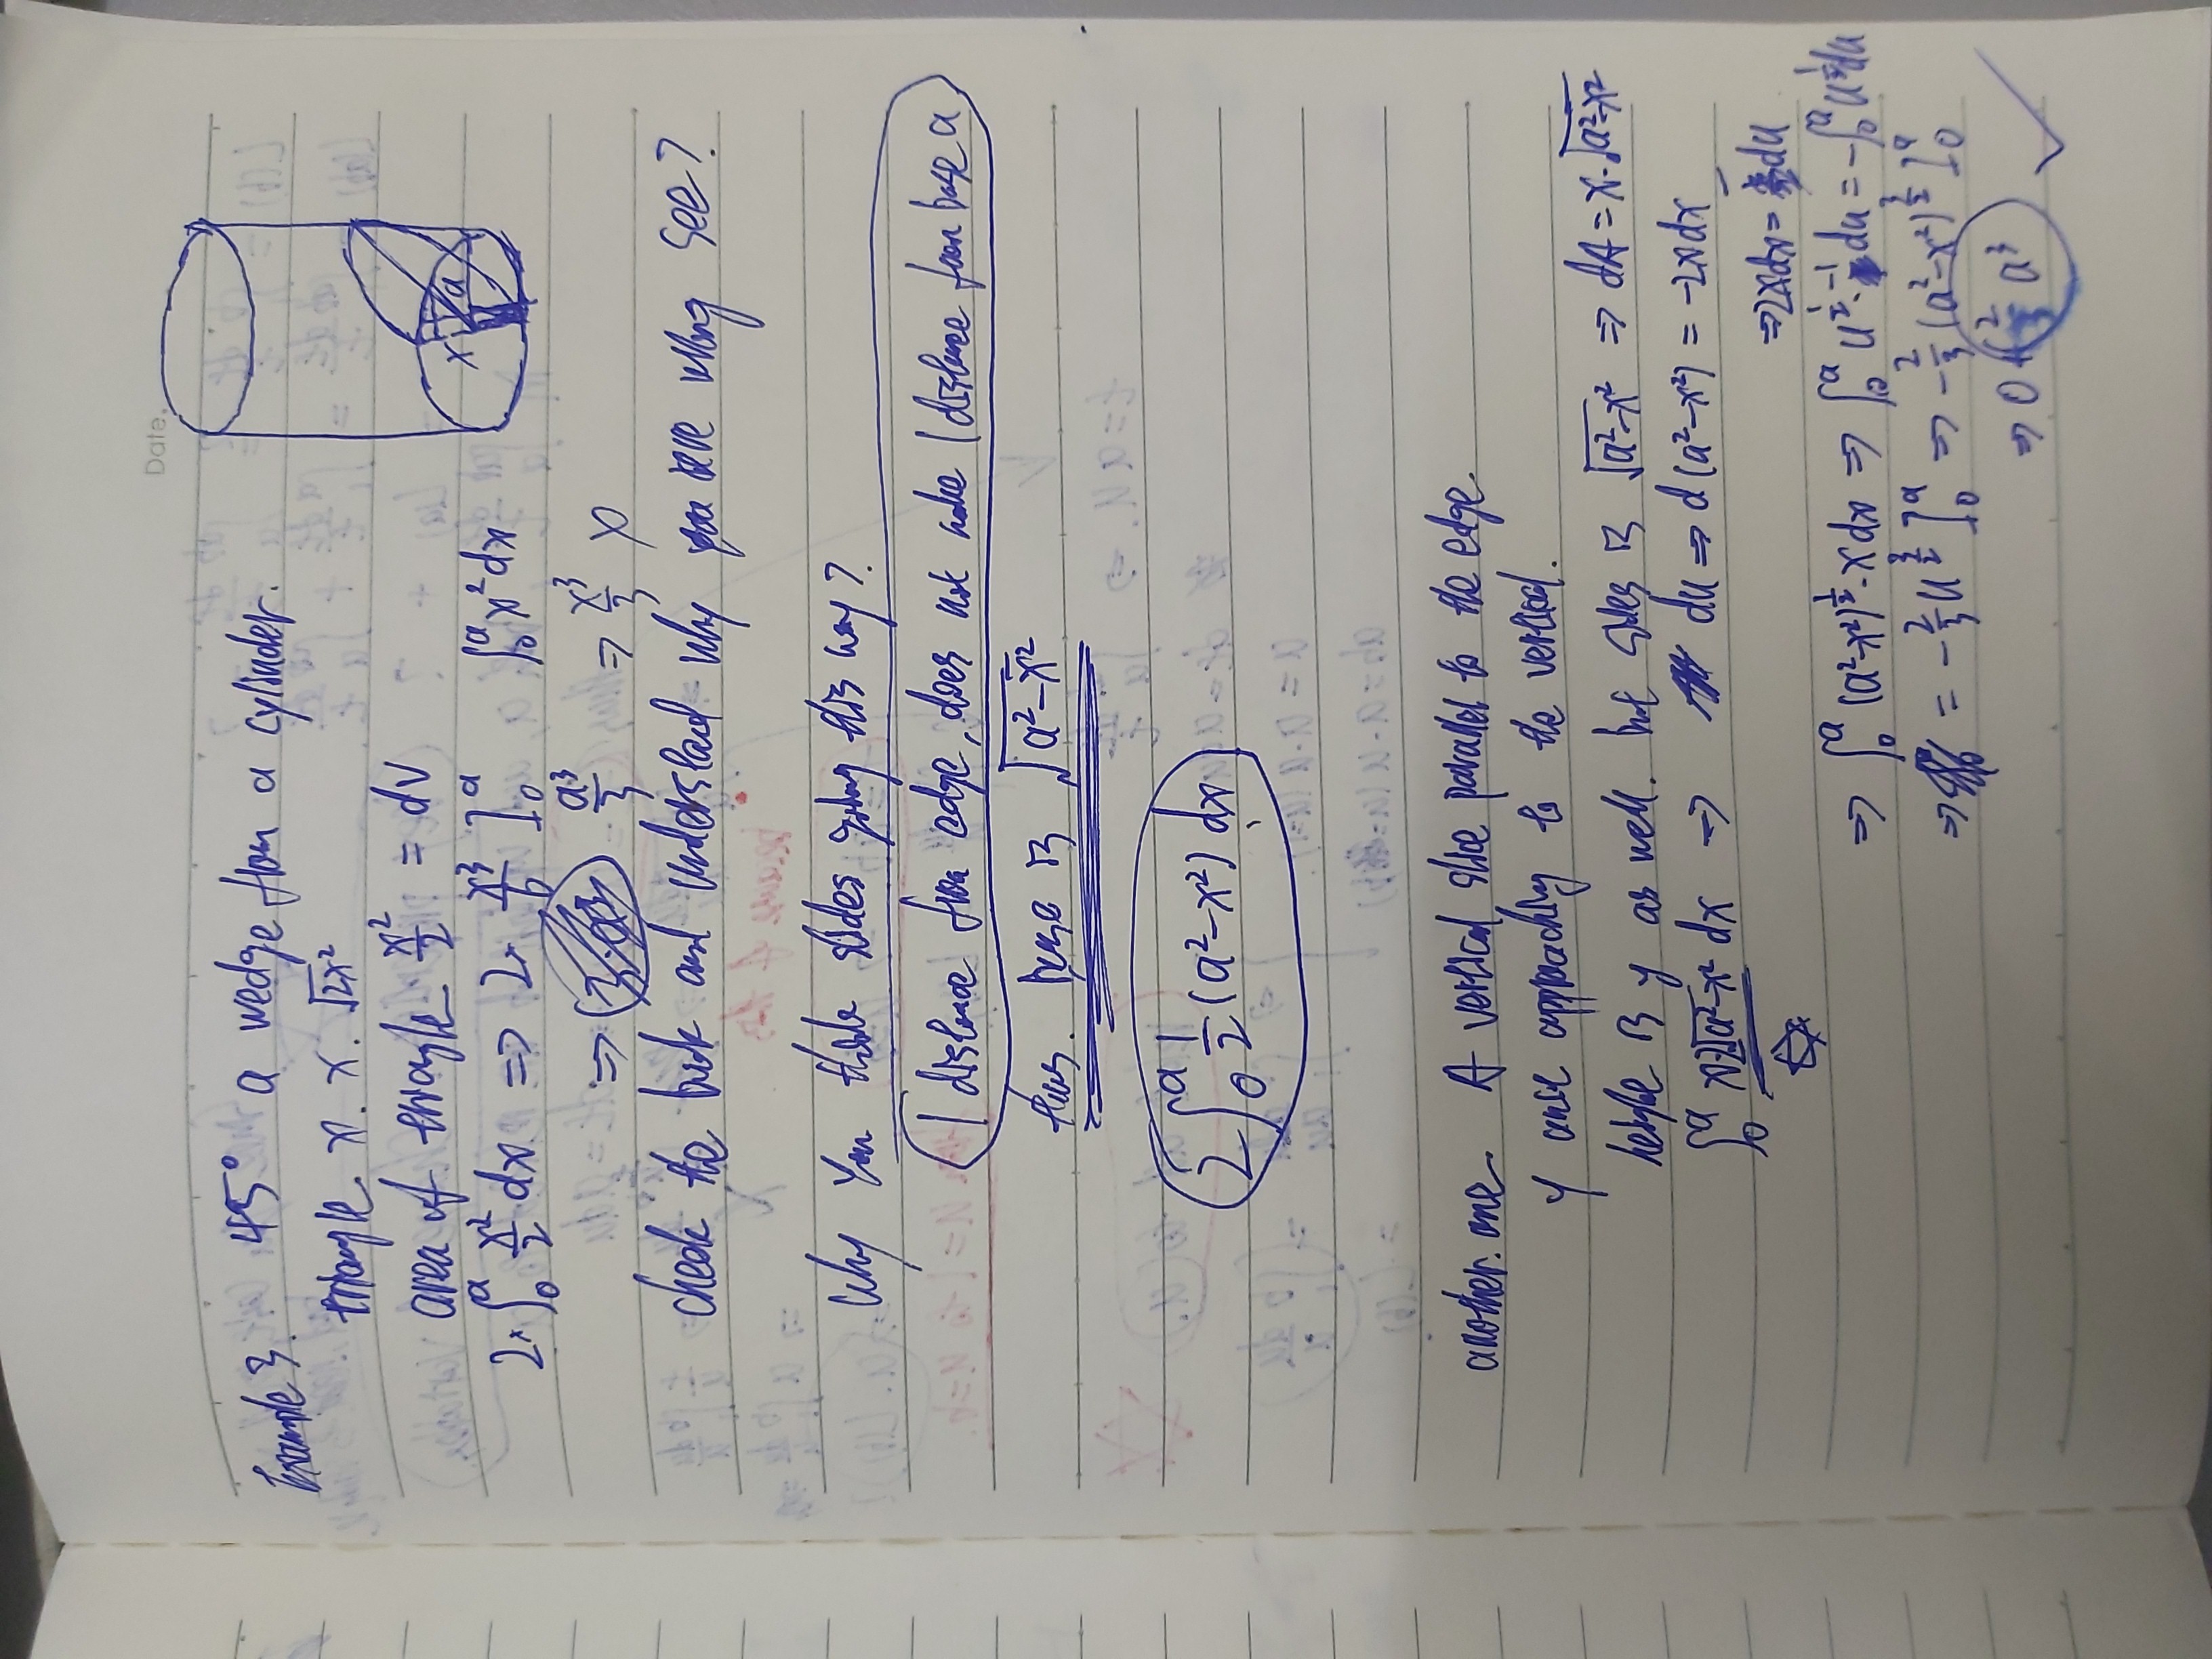 Date.
Example 3. 45° a wedge from a cylinder.
triangle. x. x. √2x²
area of triangle x²/2 = dV
2·∫₀ᵃ x²/2 dx. ⇒ 2· x³/6 ]₀ᵃ ∫₀ᵃ x² dx
⇒ a³/3 ⇒ x³/3 x
x a
check the book and understand why you were wrong see?
Why you think slides going this way?
1 distance from edge, does not make 1 distance from base a
thus. base is √a²-x²
2∫₀ᵃ 1/2 (a²-x²) dx
another. one. A vertical slice parallel to the edge.
y approaching to the vertical.
height is y as well. but sides is √a²-x² ⇒ dA = x·√a²-x²
∫₀ᵃ x·2√a²-x² dx ⇒ du ⇒ d(a²-x²) = -2x dx
⇒ 2x dx = -du
⇒ ∫₀ᵃ (a²-x²)^½ · x dx ⇒ ∫₀ᵃ u^½ · -1 du = -∫₀ᵃ u^½ du
⇒ = -2/3 u^3/2 ]₀ᵃ ⇒ -2/3 (a²-x²)^3/2 ]₀ᵃ
⇒ 0 + 2/3 a³